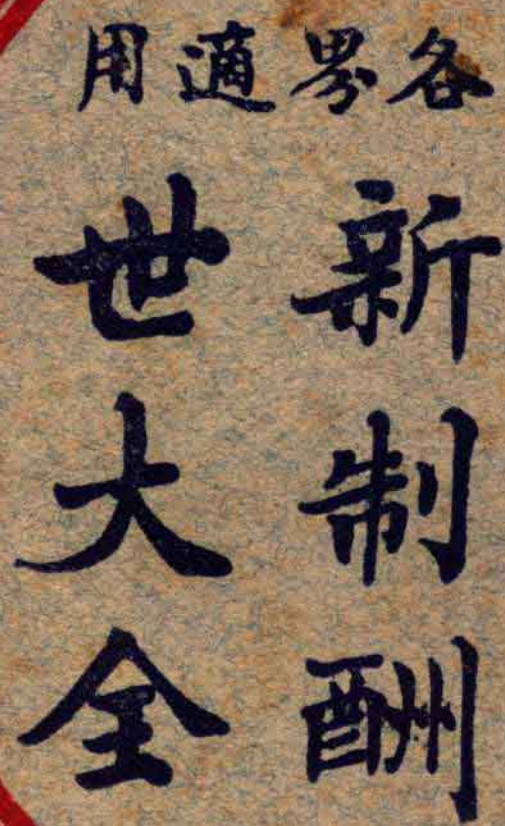 各界適用
新制酬
世大全